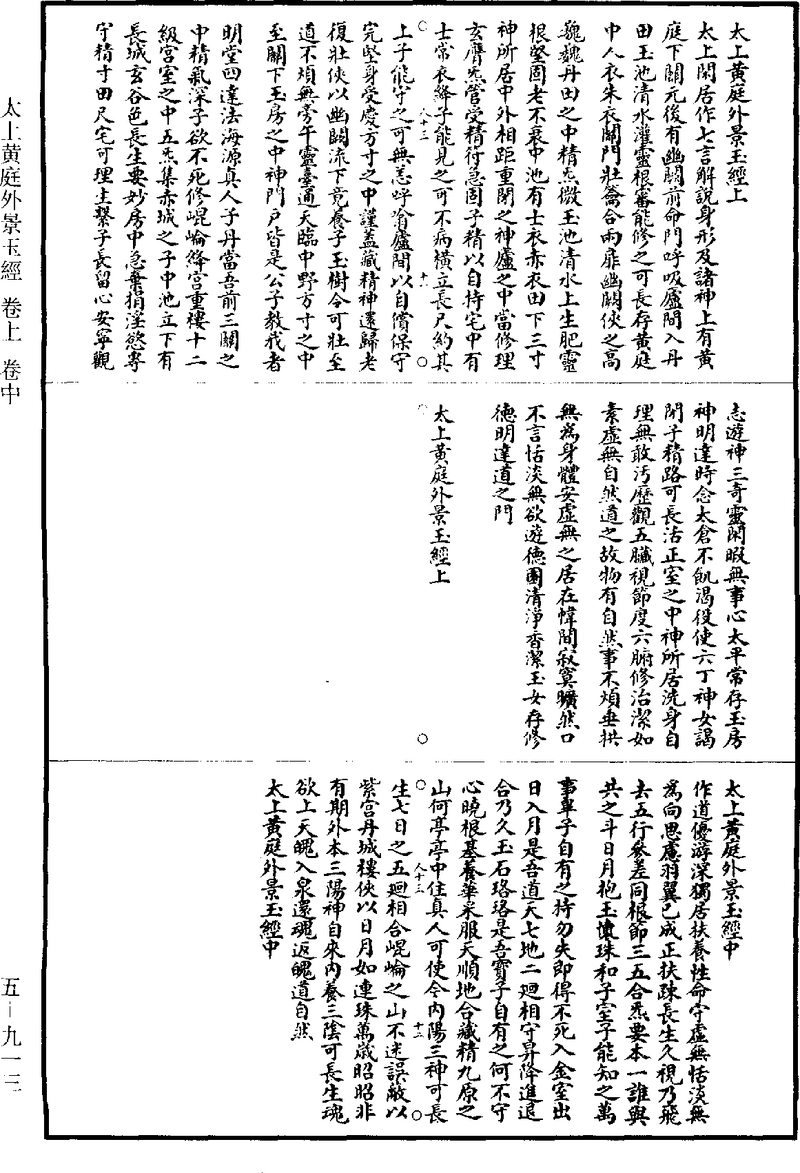 太上黃庭外景玉經上
太上閑居作七言解說身形及諸神上有黃
庭下關元後有幽闕前命門呼吸廬間入丹
田玉池清水灌靈根審能修之可長存黃庭
中人衣朱衣關門壯籥合兩扉幽闕俠之高
巍巍丹田之中精炁微玉池清水上生肥靈
根堅固老不衰中池有士衣赤衣田下三寸
神所居中外相距重閉之神廬之中當修理
玄膺炁管受精符急固子精以自持宅中有
士常衣絳子能見之可不病橫立長尺約其
上子能守之可無恙呼噏廬間以自償保守
完堅身受慶方寸之中謹蓋藏精神還歸老
復壯俠以幽闕流下竟養子玉樹令可壯至
道不煩無旁午靈臺通天臨中野方寸之中
至關下玉房之中神門戶皆是公子教我者
明堂四達法海源真人子丹當吾前三關之
中精氣深子欲不死修崐崘絳宮重樓十二
級宮室之中五炁集赤城之子中池立下有
長城玄谷邑長生要妙房中急棄捐淫慾專
守精寸田尺宅可理生繫子長留心安寧觀
志遊神三奇靈閑暇無事心太平常存玉房
神明達時念太倉不飢渴役使六丁神女謁
閉子精路可長活正室之中神所居洗身自
理無敢汚歷觀五臟視節度六腑修治潔如
素虛無自然道之故物有自然事不煩垂拱
無為身體安虛無之居在幃間寂寞曠然口
不言恬淡無欲遊德園清淨香潔玉女存修
德明達道之門
太上黃庭外景玉經上
太上黃庭外景玉經中
作道優游深獨居扶養性命守虛無恬淡無
為向思慮羽翼已成正扶踈長生久視乃飛
去五行參差同根節三五合炁要本一誰與
共之斗日月抱玉懷珠和子室子能知之萬
事畢子自有之持勿失即得不死入金室出
日入月是吾道天七地二迴相守昇降進退
合乃久玉石珞珞是吾寶子自有之何不守
心曉根基養華采服天順地合藏精九原之
山何亭亭中住真人可使令內陽三神可長
生七日之五迴相合崐崘之山不迷誤蔽以
紫宮丹城樓俠以日月如連珠萬歲昭昭非
有期外本三陽神自來內養三陰可長生魂
欲上天魄入泉還魂返魄道自然
太上黃庭外景玉經中
太上黄庭外景玉經 卷上 卷中
五－九一三